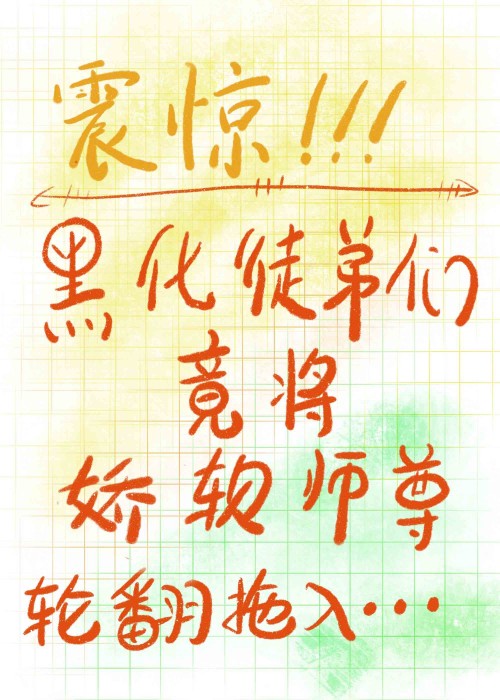 震惊!!!
黑化徒弟们
竟将
娇软师尊
轮翻拖入···